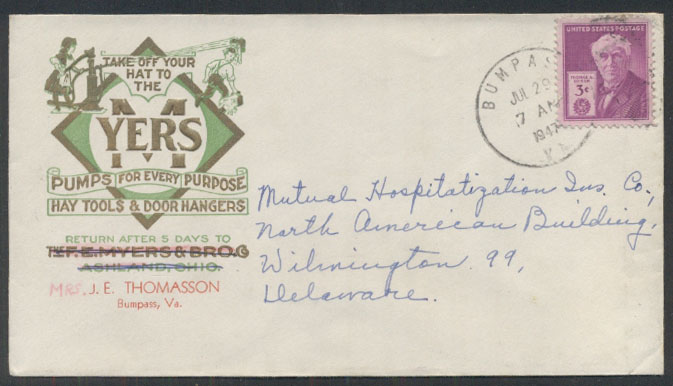 TAKE OFF YOUR
HAT TO
THE
MYERS
PUMPS FOR EVERY PURPOSE
HAY TOOLS & DOOR HANGERS
RETURN AFTER 5 DAYS TO
THE F.E. MYERS & BRO. CO
ASHLAND, OHIO.
MRS. J. E. THOMASSON
Bumpass, Va.
BUMPASS
JUL 29
7 AM
1947
VA
UNITED STATES POSTAGE
THOMAS A.
EDISON
3¢
Mutual Hospitatization Ins. Co.,
North American Building,
Wilmington 99,
Delaware.